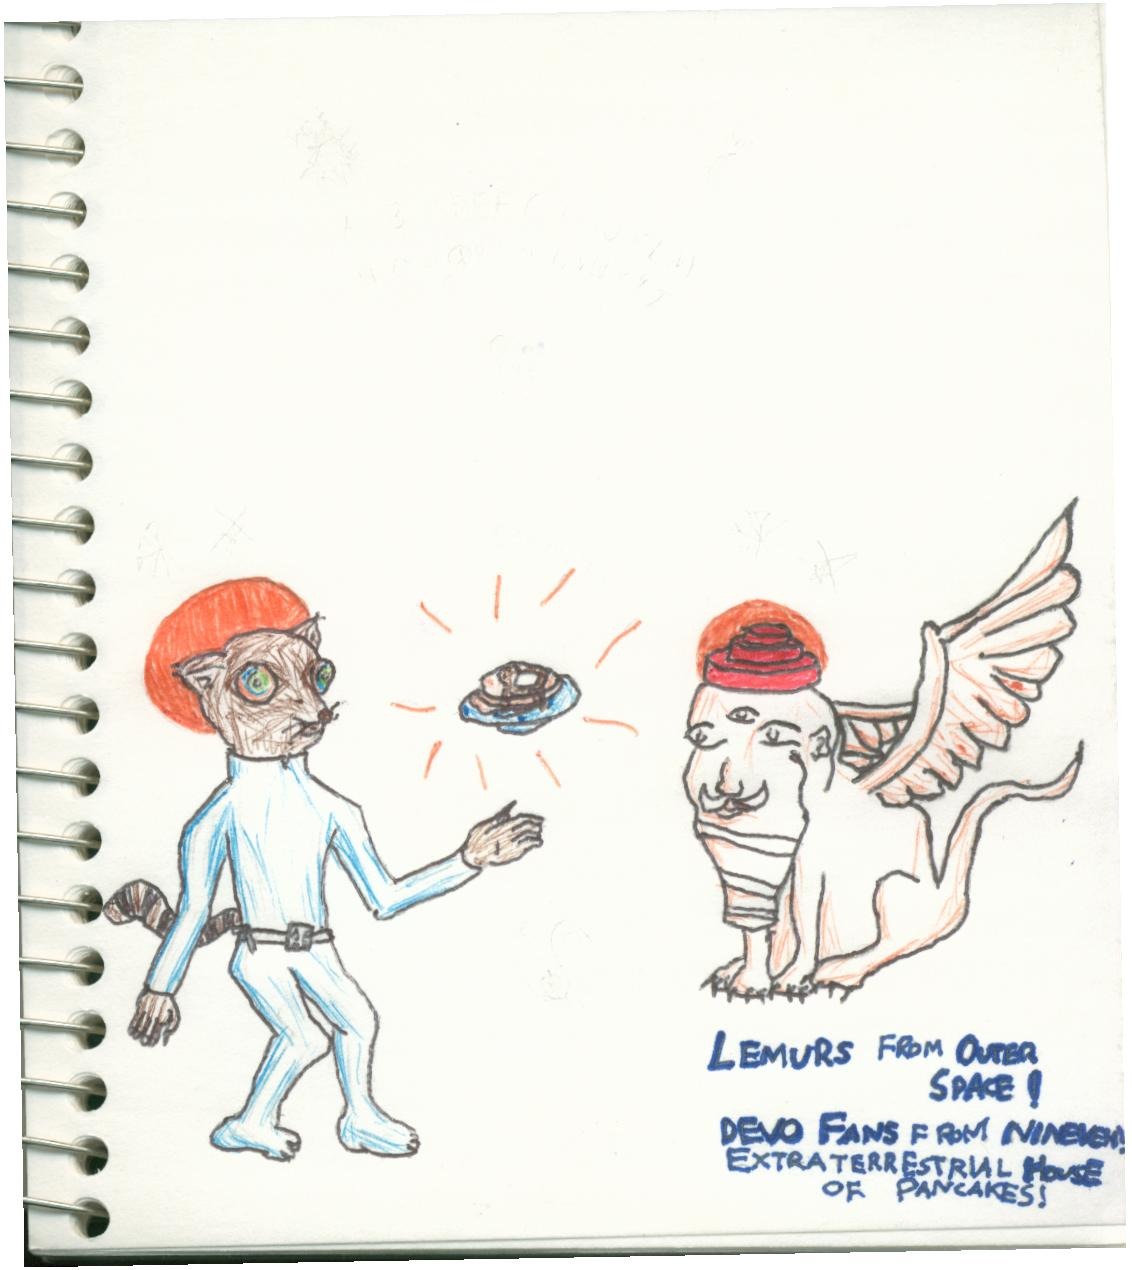 LEMURS FROM OUTER
SPACE!
DEVO FANS FROM NINEVEH!
EXTRATERRESTRIAL HOUSE
OF PANCAKES!